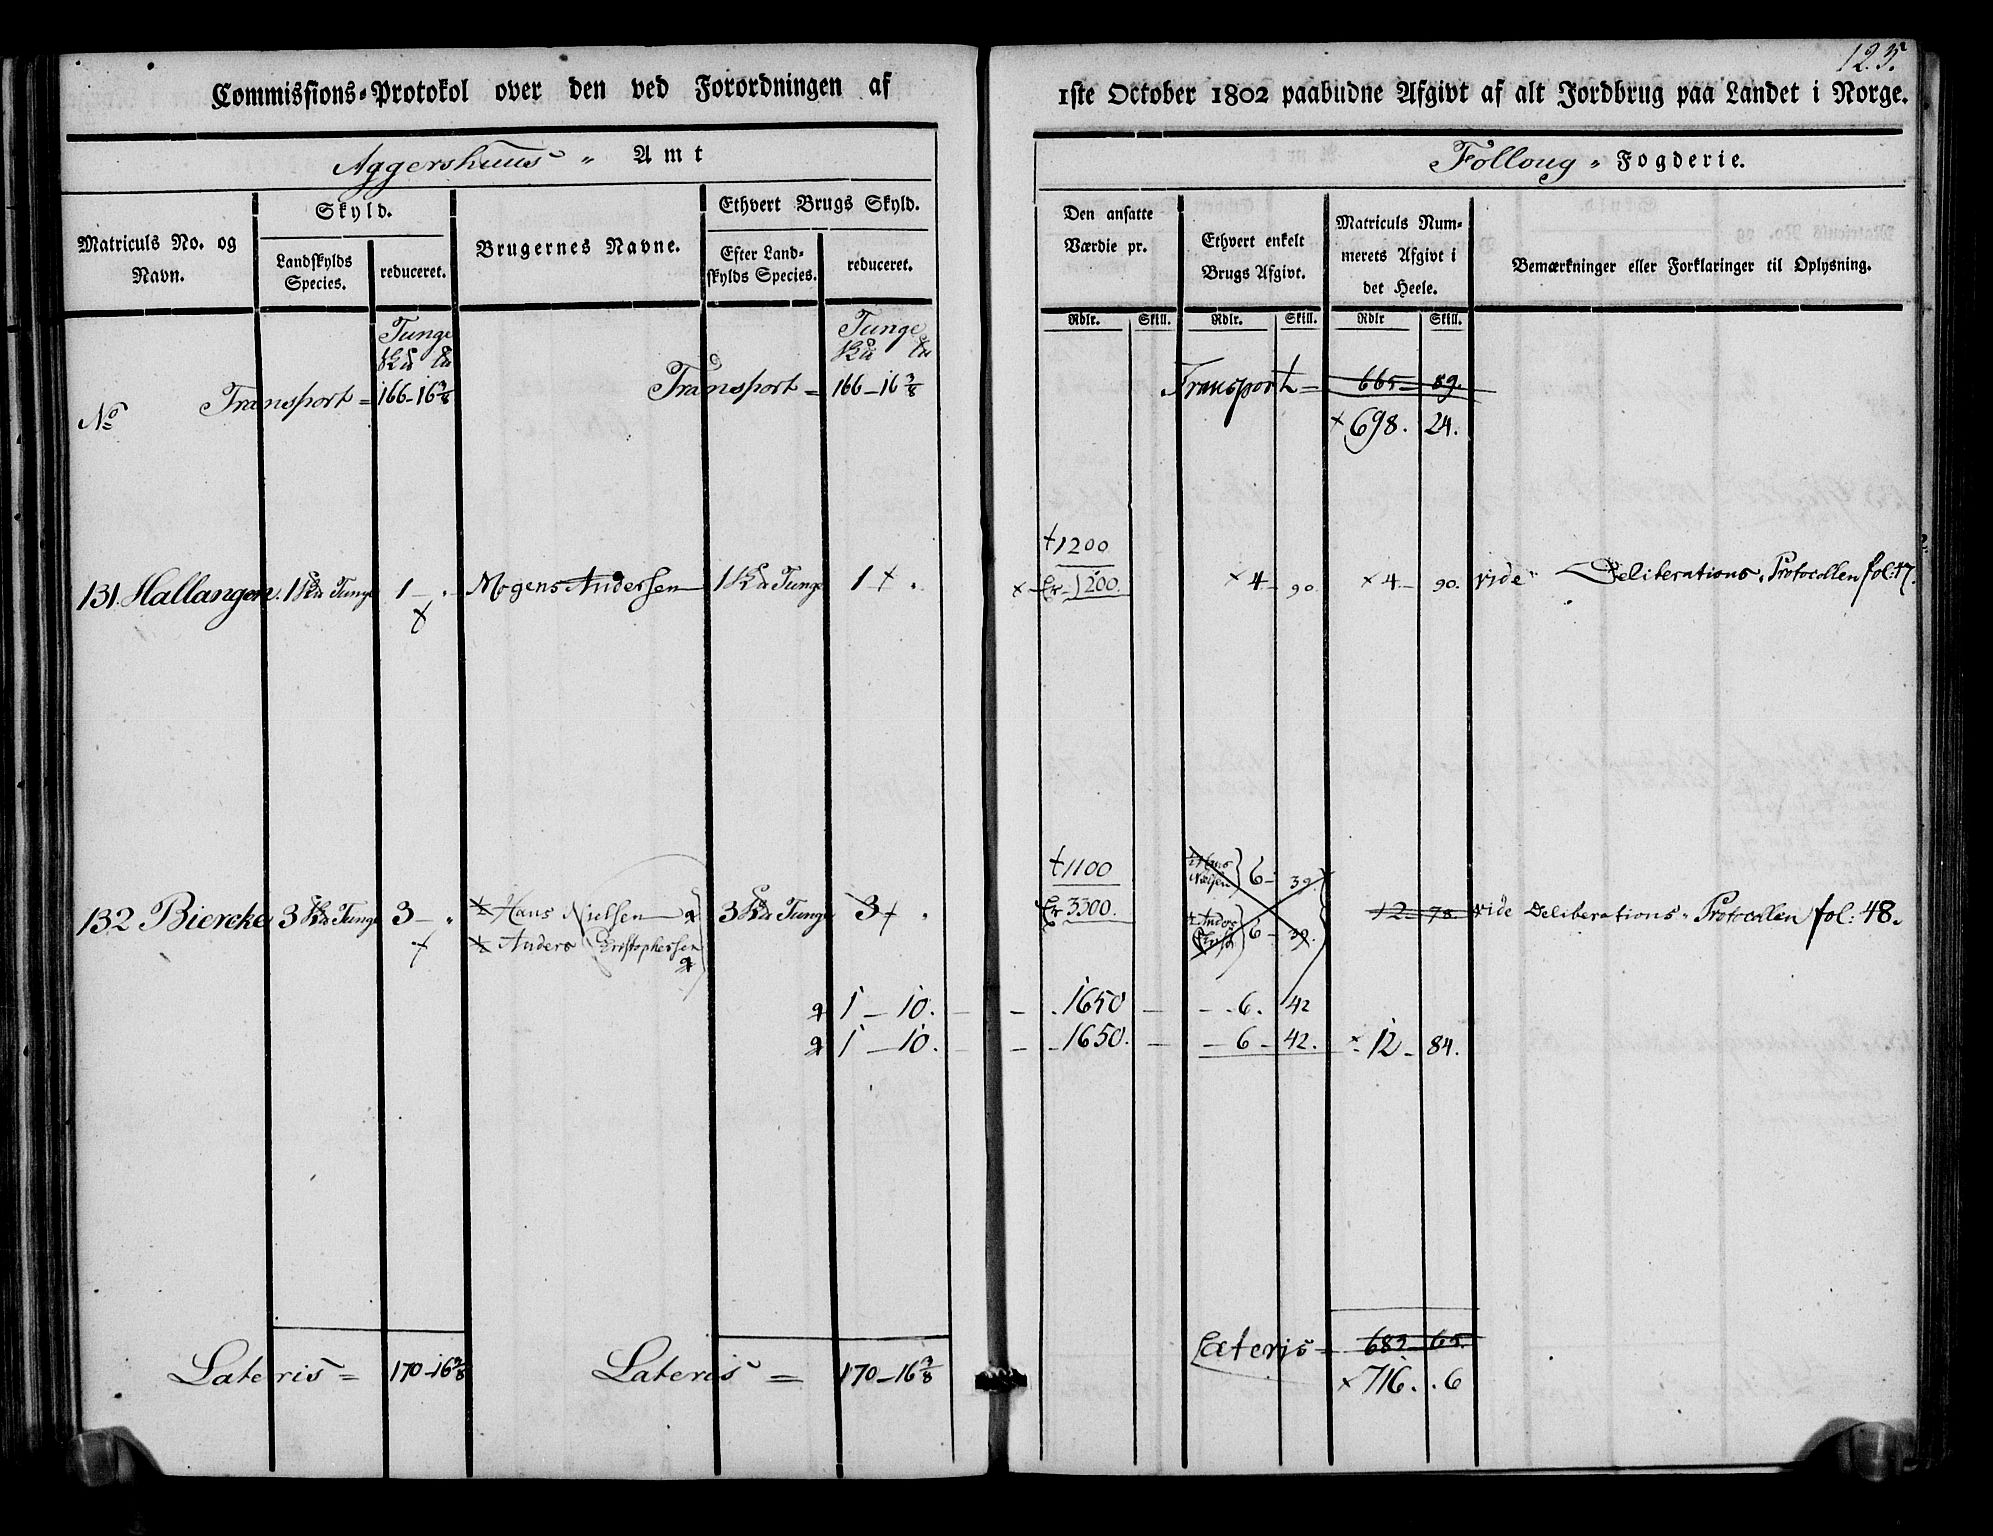 123.
Commissions-Protokol over den ved Forordningen af 1ste October 1802 paabudne Afgivt af alt Jordbrug paa Landet i Norge.
Aggershuus " Amt
Folloug " Fogderie.
Matriculs No. og Navn.
Skyld.
Landskylds Species.
reduceret.
Brugernes Navne.
Ethvert Brugs Skyld.
Efter Landskylds Species.
reduceret.
Den ansatte Værdie pr.
Rdlr. Skill.
Ethvert enkelt Brugs Afgivt.
Rdlr. Skill.
Matriculs Nummerets Afgivt i det Heele.
Rdlr Skill.
Bemærkninger eller Forklaringer til Oplysning.
Tunge
Tunge
No Transport = 166-16 3/8 Transport = 166-16 3/8 Transport = 665-89.
× 698. 24.
+1200
131. Hallangen. 1 Tunge 1 - " Mogens Andersen 1 Tunge 1 + " × Er 1200. × 4 - 90. × 4 - 90. vide Deliberations-Protocollen fol: 47.
+1100
132 Biercke 3 Tunge 3 - " Hans Nielsen 3 Tunge 3 + " Er 3300. Hans Nielsen 6 - 39. 12 - 78. vide Deliberations-Protocollen fol: 48.
Anders Christophersen Anders 6 - 39.
1 - 10. - - 1650 - - 6. 42
1 - 10. - - 1650. - - 6 - 42. × 12 - 84.
Lateris = 170-16 3/8 Lateris = 170-16 3/8 Lateris = 683-65.
× 716. . 6